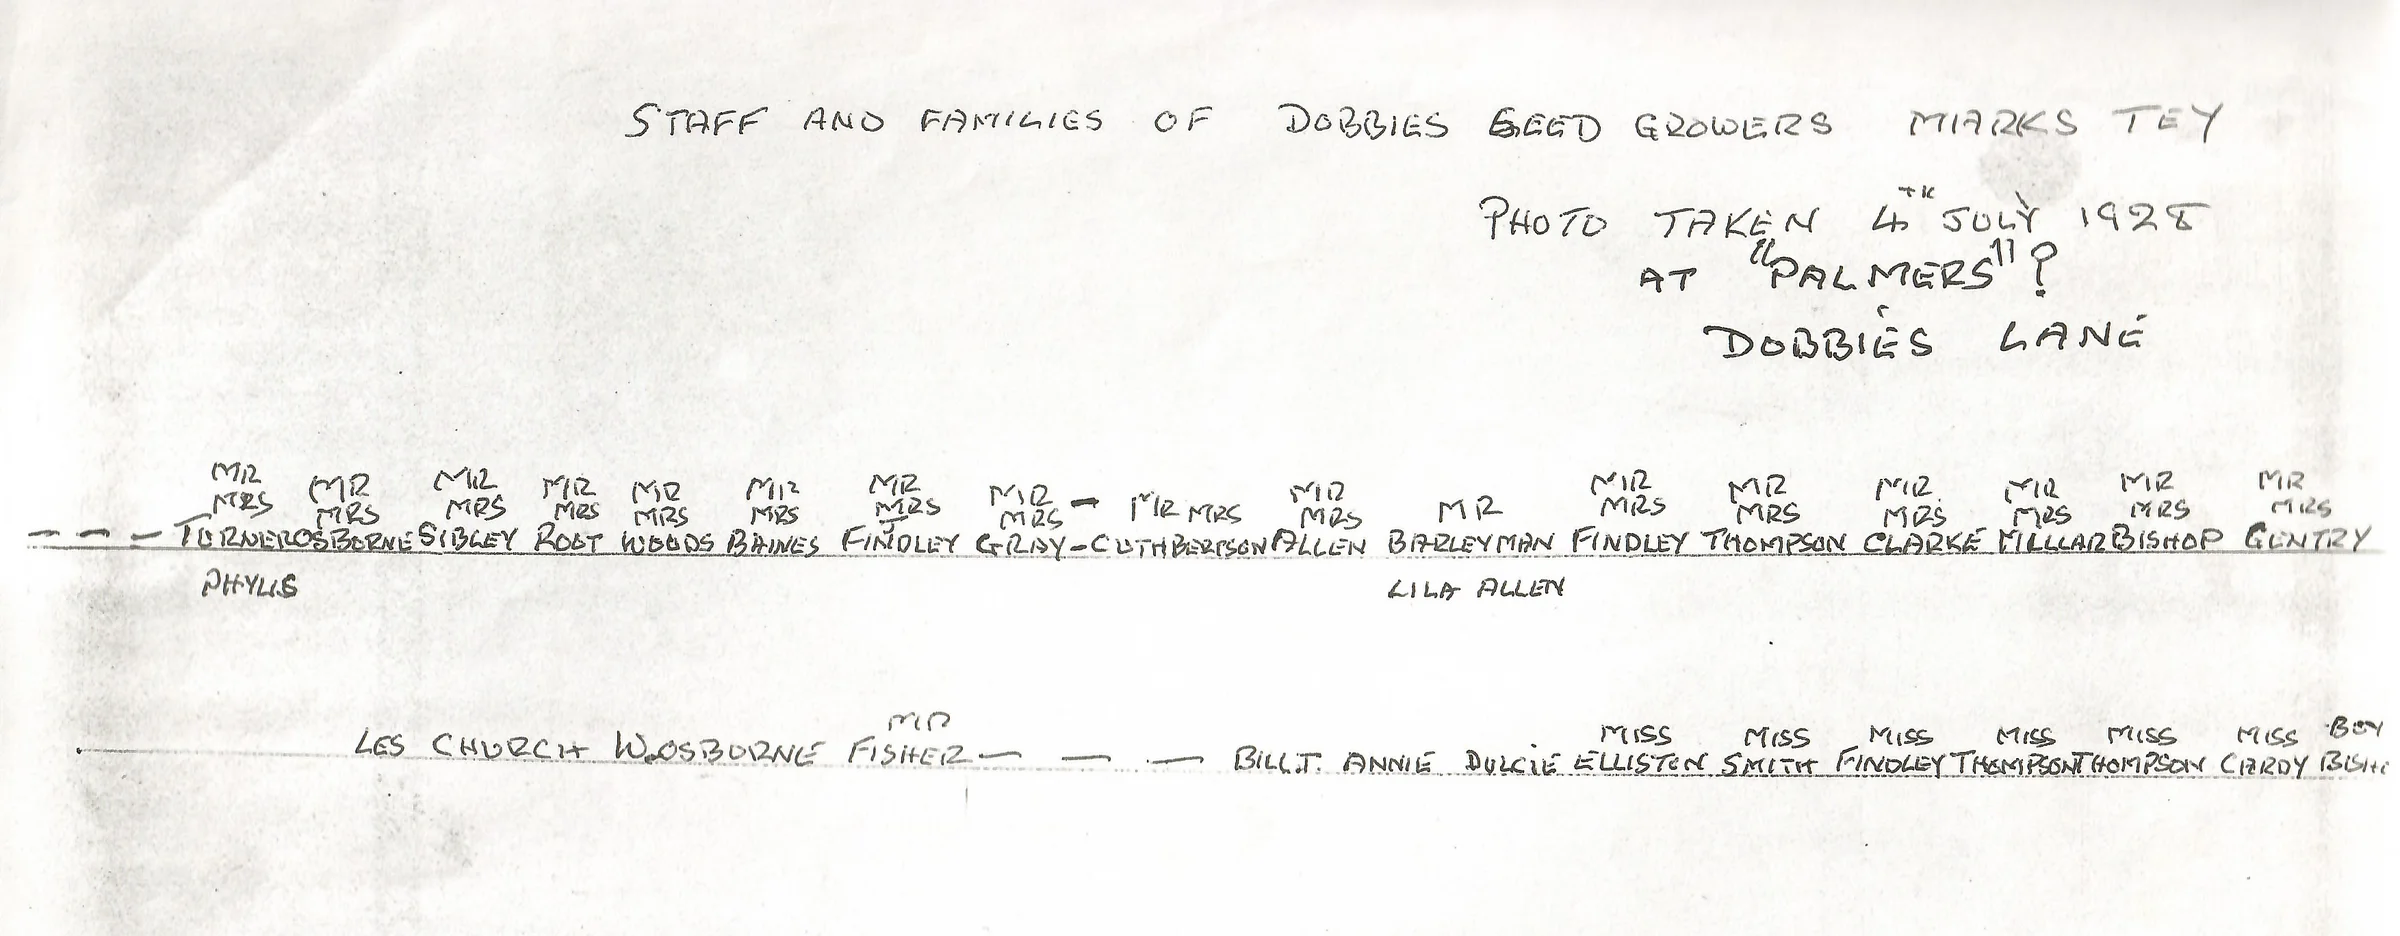 STAFF AND FAMILIES OF DOBBIES SEED GROWERS MARKS TEY
PHOTO TAKEN 4TH JULY 1928
AT "PALMERS"?
DOBBIES LANE
MR MR MR MR MR MR MR MR - MR MRS MR MR MR MR MR MR MR MR
MRS MRS MRS MRS MRS MRS MRS MRS MRS MRS MRS MRS MRS MRS MRS
- - - TURNER OSBORNE SIBLEY ROOT WOODS BAINES FINDLEY GRAY - CUTHBERTSON ALLEN BARLEYMAN FINDLEY THOMPSON CLARKE MILLLAR BISHOP GENTRY
PHYLIS LILA ALLEN
MR MISS MISS MISS MISS MISS MISS BOY
LES CHURCH W.OSBORNE FISHER - - - BILL.T. ANNIE DULCIE ELLISTON SMITH FINDLEY THOMPSON THOMPSON CARDY